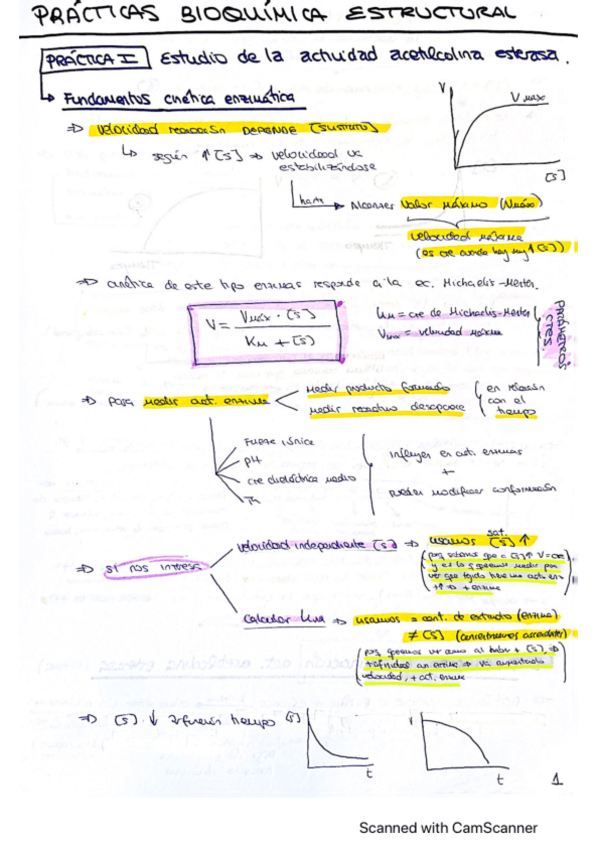 PRÁCTICAS BIOQUÍMICA ESTRUCTURAL
PRÁCTICA I Estudio de la actividad acetilcolina esterasa.
Fundamentos cinética enzimática
⇒ velocidad reacción DEPENDE [SUSTRATO]
según ↑[S] ⇒ velocidad va
estabilizándose
V
Vmáx
[S]
hasta Alcanzar valor máximo (Vmáx)
velocidad máxima
(es cte cuando hay muy ↑[S])
⇒ cinética de este tipo enzimas responde a la ec. Michaelis-Menten.
V = Vmáx · [S] / KM + [S]
KM = cte de Michaelis-Menten
Vmáx = velocidad máxima
PARÁMETROS
CTES.
⇒ para medir act. enzima
medir producto formado
medir reactivo desaparece
en relación
con el
tiempo
Fuerza iónica
pH
cte dieléctrica medio
Tª
influyen en act. enzimas
+
pueden modificar conformación
⇒ si nos interesa
velocidad independiente [S] ⇒ usamos [S]↑
sat.
(porq sabemos que a [S]↑ V=cte
y es lo q queremos medir para
ver que tejido tiene una act. enz
calcular KM ⇒ usamos = cant. de extracto (enzima)
≠ [S] (concentraciones ascendentes)
(porq queremos ver como al haber + [S], ⇒
velocidad, + act. enzima
⇒ [S] ↓ en función tiempo
[S]
t
V
t
1
Scanned with CamScanner